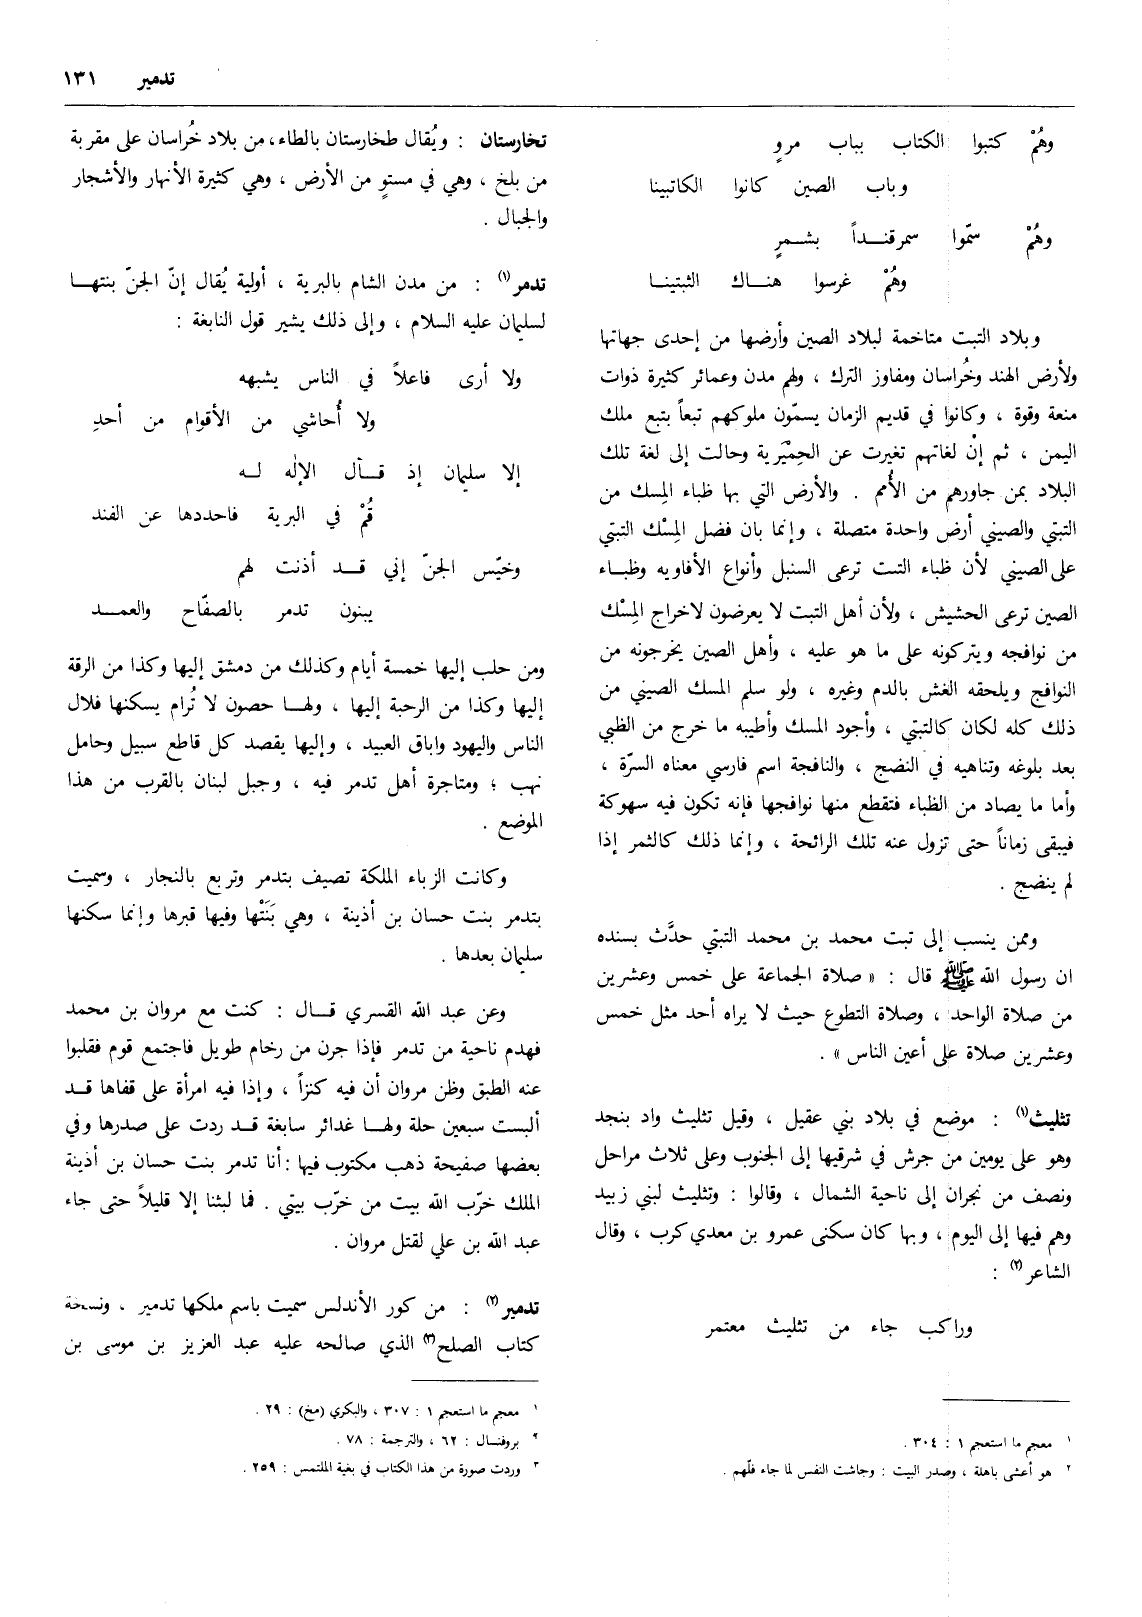 تدمير ١٣١
وهُمْ كتبوا الكتاب بباب مروٍ
وباب الصين كانوا الكاتبينا
وهُمْ سمّوا سمرقنداً بشمرٍ
وهُمْ غرسوا هناك الثبتينا
وبلاد التبت متاخمة لبلاد الصين وأرضها من إحدى جهاتها
ولأرض الهند وخُراسان ومفاوز الترك ، ولهم مدن وعمائر كثيرة ذوات
منعة وقوة ، وكانوا في قديم الزمان يسمّون ملوكهم تبعاً بتبع ملك
اليمن ، ثم إنْ لغاتهم تغيرت عن الحِمْيَرية وحالت إلى لغة تلك
البلاد بمن جاورهم من الأُمم . والأرض التي بها ظباء المِسك من
التبتي والصيني أرض واحدة متصلة ، وإنما بان فضل المِسْك التبتي
على الصيني لأن ظباء التبت ترعى السنبل وأنواع الأفاويه وظباء
الصين ترعى الحشيش ، ولأن أهل التبت لا يعرضون لاخراج المِسْك
من نوافجه ويتركونه على ما هو عليه ، وأهل الصين يخرجونه من
النوافج ويلحقه الغش بالدم وغيره ، ولو سلم المسك الصيني من
ذلك كله لكان كالتبتي ، وأجود المسك وأطيبه ما خرج من الظبي
بعد بلوغه وتناهيه في النضج ، والنافجة اسم فارسي معناه السرّة ،
وأما ما يصاد من الظباء فتقطع منها نوافجها فإنه تكون فيه سهوكة
فيبقى زماناً حتى تزول عنه تلك الرائحة ، وإنما ذلك كالثمر إذا
لم ينضج .
وممن ينسب إلى تبت محمد بن محمد التبتي حدَّث بسنده
ان رسول الله ﷺ قال : « صلاة الجماعة على خمس وعشرين
من صلاة الواحد ، وصلاة التطوع حيث لا يراه أحد مثل خمس
وعشرين صلاة على أعين الناس » .
تثليث(١) : موضع في بلاد بني عقيل ، وقيل تثليث واد بنجد
وهو على يومين من جرش في شرقيها إلى الجنوب وعلى ثلاث مراحل
ونصف من نجران إلى ناحية الشمال ، وقالوا : وتثليث لبني زبيد
وهم فيها إلى اليوم ، وبها كان سكنى عمرو بن معدي كرب ، وقال
الشاعر(٢) :
وراكب جاء من تثليث معتمر
١ معجم ما استعجم ١ : ٣٠٤ .
٢ هو أعشى باهلة ، وصدر البيت : وجاشت النفس لما جاء فلّهم .
تخارستان : ويُقال طخارستان بالطاء، من بلاد خُراسان على مقربة
من بلخ ، وهي في مستوٍ من الأرض ، وهي كثيرة الأنهار والأشجار
والجبال .
تدمر(١) : من مدن الشام بالبرية ، أولية يُقال إنّ الجنّ بنتها
لسليمان عليه السلام ، وإلى ذلك يشير قول النابغة :
ولا أرى فاعلاً في الناس يشبهه
ولا أُحاشي من الأقوام من أحدِ
إلا سليمان إذ قال الإله له
قُمْ في البرية فاحددها عن الفند
وخيّس الجنّ إني قد أذنت لهم
يبنون تدمر بالصفّاح والعمد
ومن حلب إليها خمسة أيام وكذلك من دمشق إليها وكذا من الرقة
إليها وكذا من الرحبة إليها ، ولها حصون لا تُرام يسكنها فلال
الناس واليهود واباق العبيد ، وإليها يقصد كل قاطع سبيل وحامل
نهب ؛ ومتاجرة أهل تدمر فيه ، وجبل لبنان بالقرب من هذا
الموضع .
وكانت الزباء الملكة تصيف بتدمر وتربع بالنجار ، وسميت
بتدمر بنت حسان بن أذينة ، وهي بَنَتْها وفيها قبرها وإنما سكنها
سليمان بعدها .
وعن عبد الله القسري قال : كنت مع مروان بن محمد
فهدم ناحية من تدمر فإذا جرن من رخام طويل فاجتمع قوم فقلبوا
عنه الطبق وظن مروان أن فيه كنزاً ، وإذا فيه امرأة على قفاها قد
ألبست سبعين حلة ولها غدائر سابغة قد ردت على صدرها وفي
بعضها صفيحة ذهب مكتوب فيها : أنا تدمر بنت حسان بن أذينة
الملك خرّب الله بيت من خرّب بيتي . فما لبثنا إلا قليلاً حتى جاء
عبد الله بن علي لقتل مروان .
تدمير(٢) : من كور الأندلس سميت باسم ملكها تدمير ، ونسخة
كتاب الصلح(٣) الذي صالحه عليه عبد العزيز بن موسى بن
١ معجم ما استعجم ١ : ٣٠٧ ، والبكري (مخ) : ٢٩ .
٢ بروفنسال : ٦٢ ، والترجمة : ٧٨ .
٣ وردت صورة من هذا الكتاب في بغية الملتمس : ٢٥٩ .